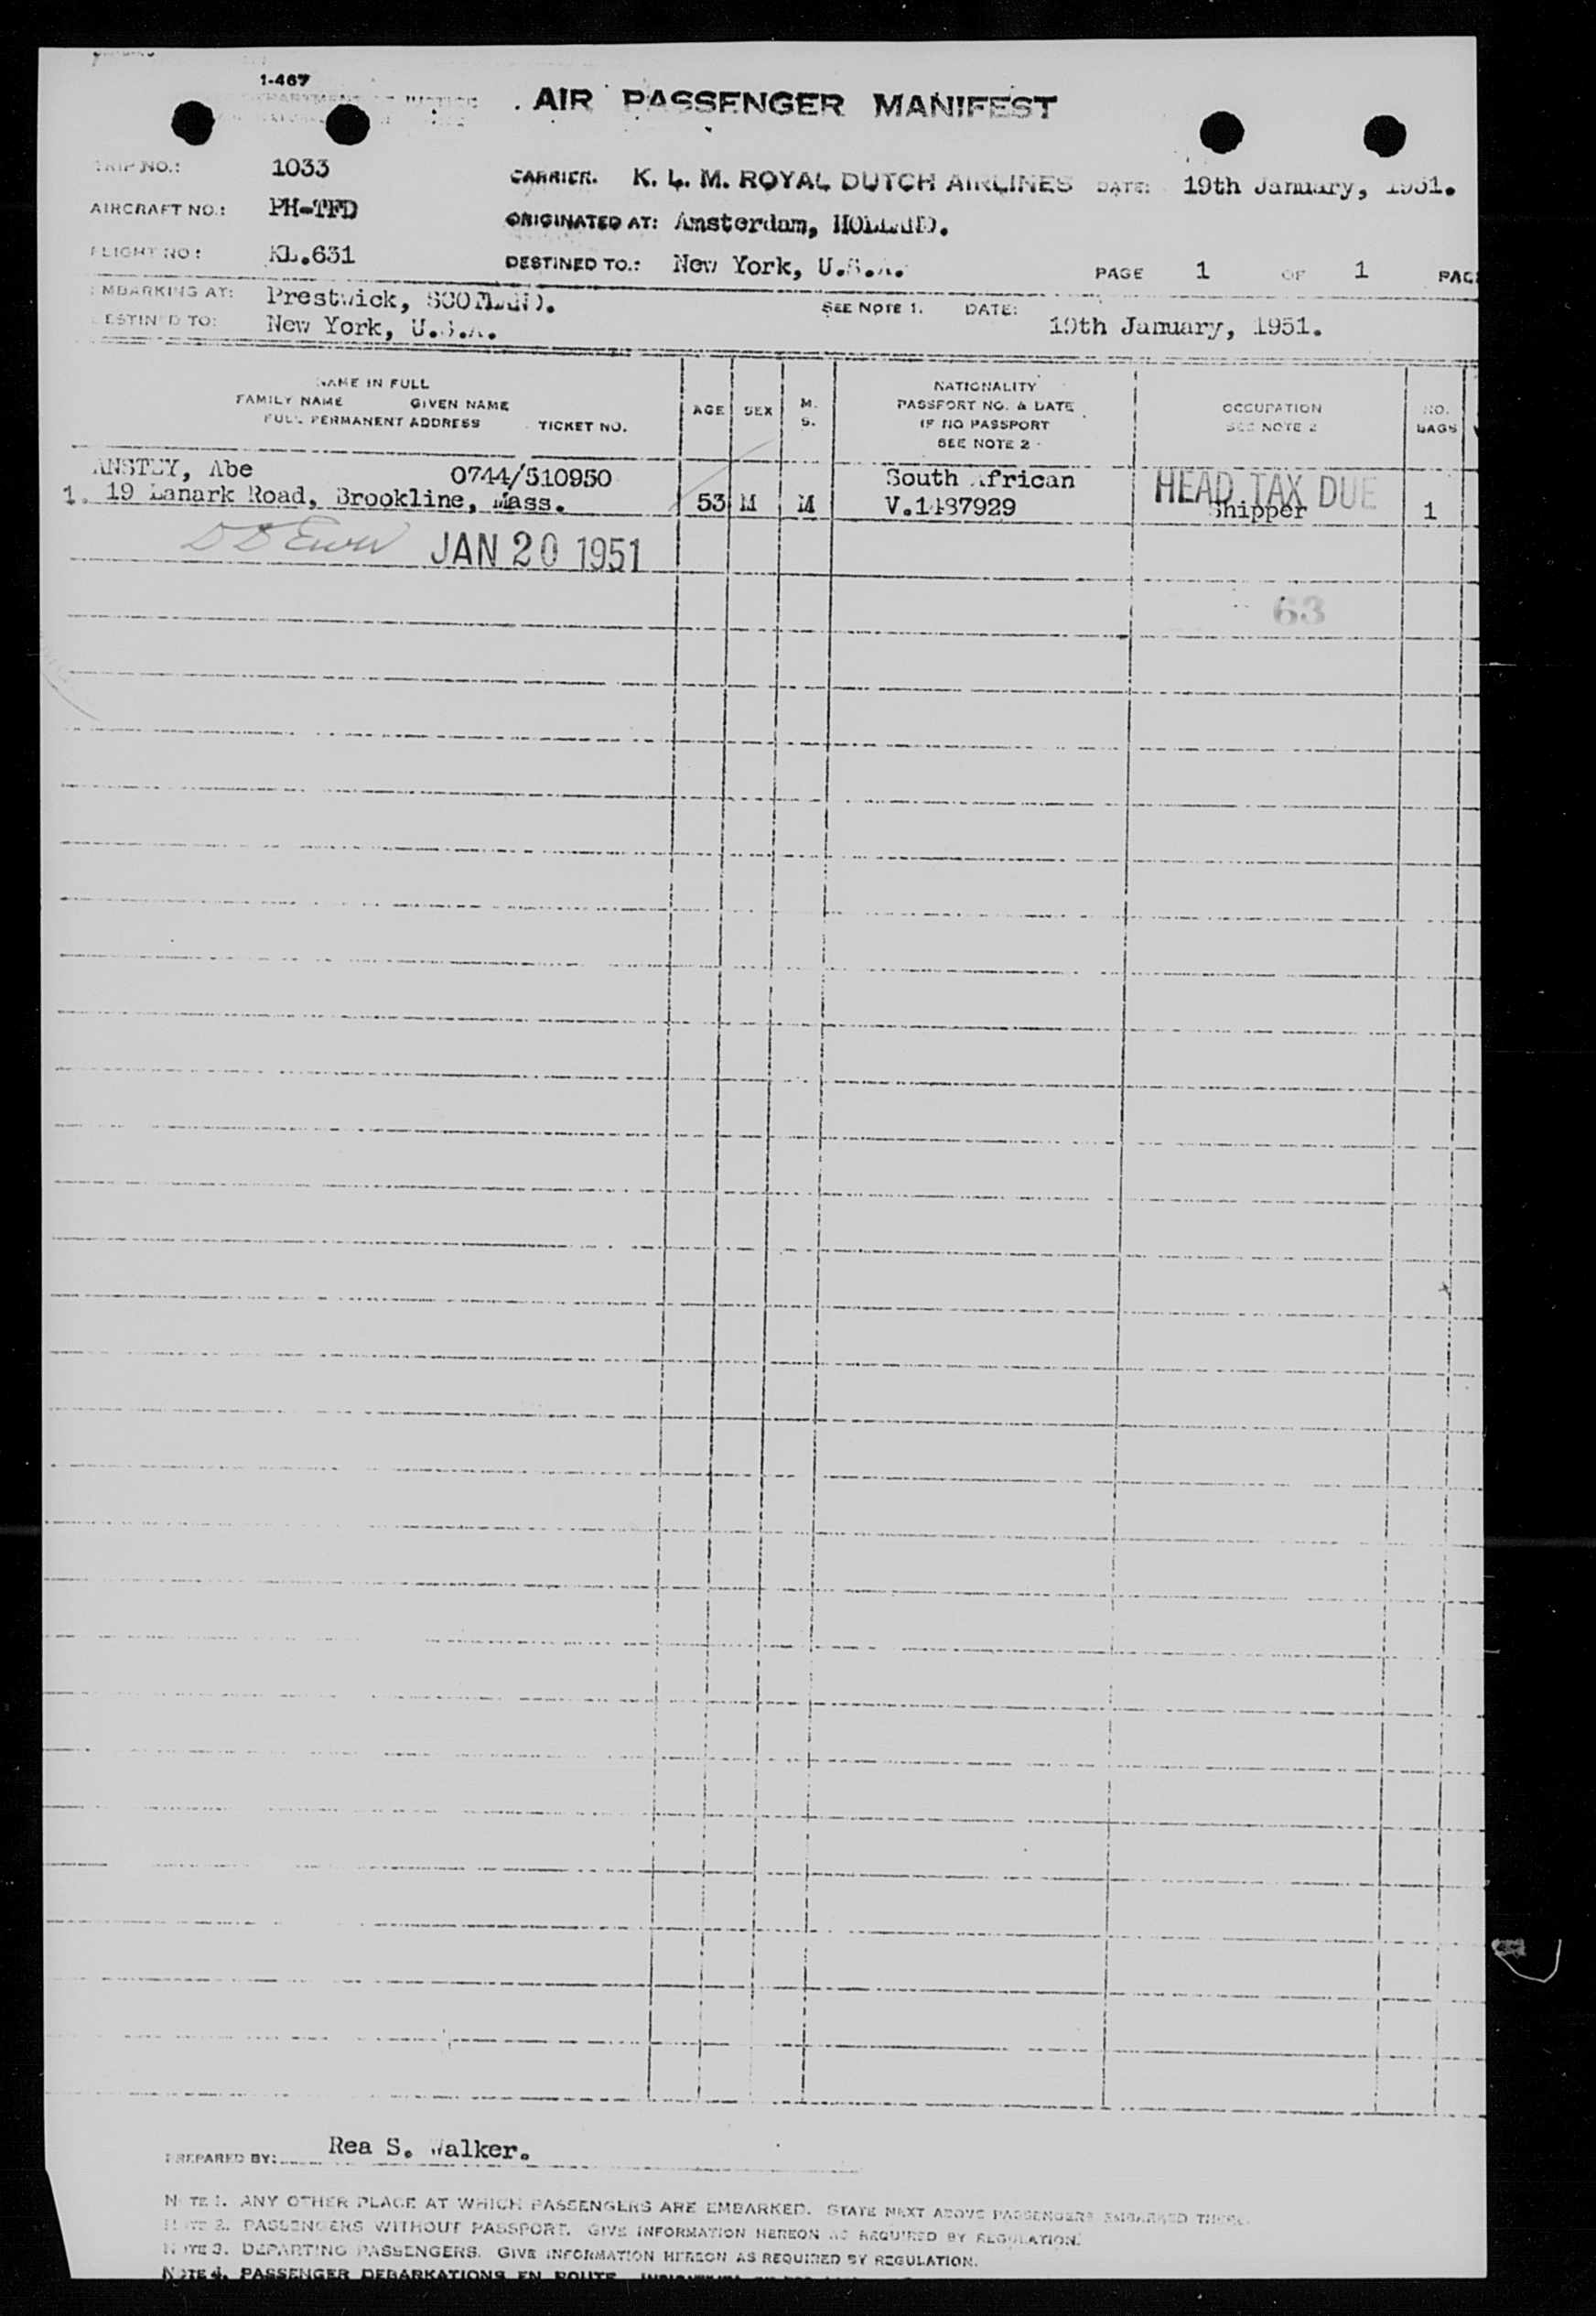 1-467
AIR PASSENGER MANIFEST
TRIP NO.: 1033 CARRIER. K. L. M. ROYAL DUTCH AIRLINES DATE: 19th January, 1951.
AIRCRAFT NO.: PH-TFD ORIGINATED AT: Amsterdam, HOLLAND.
FLIGHT NO: KL.631 DESTINED TO.: New York, U.S.A. PAGE 1 OF 1 PAG
EMBARKING AT: Prestwick, SCOTLAND. SEE NOTE 1. DATE:
DESTINED TO: New York, U.S.A. 19th January, 1951.
NAME IN FULL
FAMILY NAME GIVEN NAME
FULL PERMANENT ADDRESS TICKET NO.
AGE SEX M.
S.
NATIONALITY
PASSPORT NO. & DATE
IF NO PASSPORT
SEE NOTE 2
OCCUPATION
SEE NOTE 2
NO.
BAGS
ANSTEY, Abe 0744/510950 South African HEAD TAX DUE
1. 19 Lanark Road, Brookline, Mass. 53 M M V.1487929 Shipper 1
JAN 20 1951
63
PREPARED BY: Rea S. Walker.
NOTE 1. ANY OTHER PLACE AT WHICH PASSENGERS ARE EMBARKED. STATE NEXT ABOVE PASSENGERS EMBARKED THERE.
NOTE 2. PASSENGERS WITHOUT PASSPORT. GIVE INFORMATION HEREON AS REQUIRED BY REGULATION.
NOTE 3. DEPARTING PASSENGERS. GIVE INFORMATION HEREON AS REQUIRED BY REGULATION.
NOTE 4. PASSENGER DEBARKATIONS EN ROUTE.